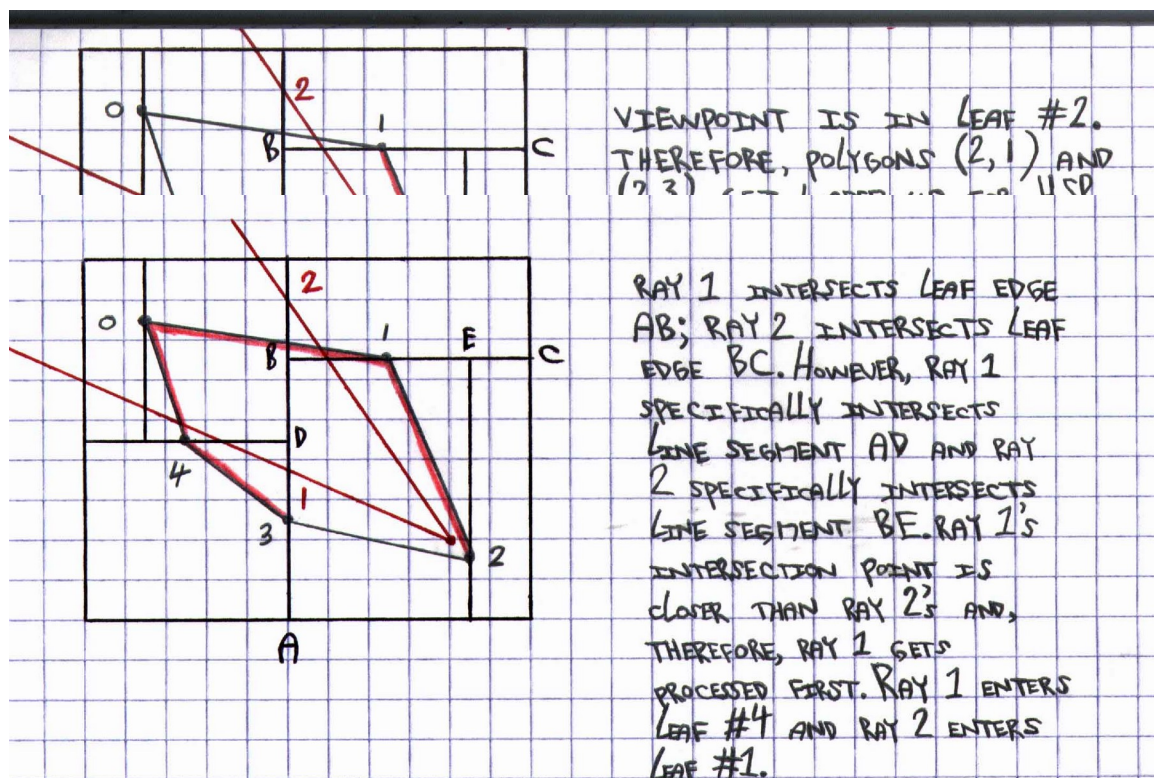 2
O
1
B
C
VIEWPOINT IS IN LEAF #2.
THEREFORE, POLYGONS (2,1) AND
2
O
1
E
B
C
D
4
1
3
2
A
RAY 1 INTERSECTS LEAF EDGE
AB; RAY 2 INTERSECTS LEAF
EDGE BC. HOWEVER, RAY 1
SPECIFICALLY INTERSECTS
LINE SEGMENT AD AND RAY
2 SPECIFICALLY INTERSECTS
LINE SEGMENT BE. RAY 1's
INTERSECTION POINT IS
CLOSER THAN RAY 2's AND,
THEREFORE, RAY 1 GETS
PROCESSED FIRST. RAY 1 ENTERS
LEAF #4 AND RAY 2 ENTERS
LEAF #1.